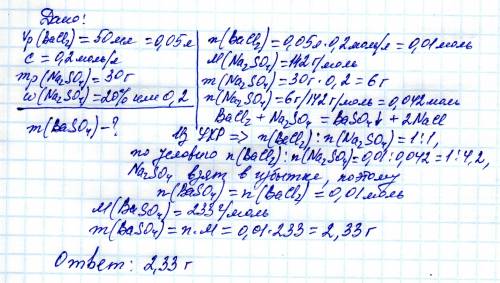 Дано:
Vр(BaCl₂) = 50мл = 0,05л
c = 0,2моль/л
mр(Na₂SO₄) = 30г
w(Na₂SO₄) = 20% или 0,2
m(BaSO₄) - ?
n(BaCl₂) = 0,05л · 0,2моль/л = 0,01моль
M(Na₂SO₄) = 142г/моль
m(Na₂SO₄) = 30г · 0,2 = 6г
n(Na₂SO₄) = 6г/142г/моль = 0,042моль
BaCl₂ + Na₂SO₄ = BaSO₄↓ + 2NaCl
Из УХР => n(BaCl₂) : n(Na₂SO₄) = 1:1,
по условию n(BaCl₂) : n(Na₂SO₄) = 0,01 : 0,042 = 1:4,2,
Na₂SO₄ взят в избытке, поэтому
n(BaSO₄) = n(BaCl₂) = 0,01 моль
M(BaSO₄) = 233г/моль
m(BaSO₄) = n · M = 0,01 · 233 = 2,33г
Ответ: 2,33г